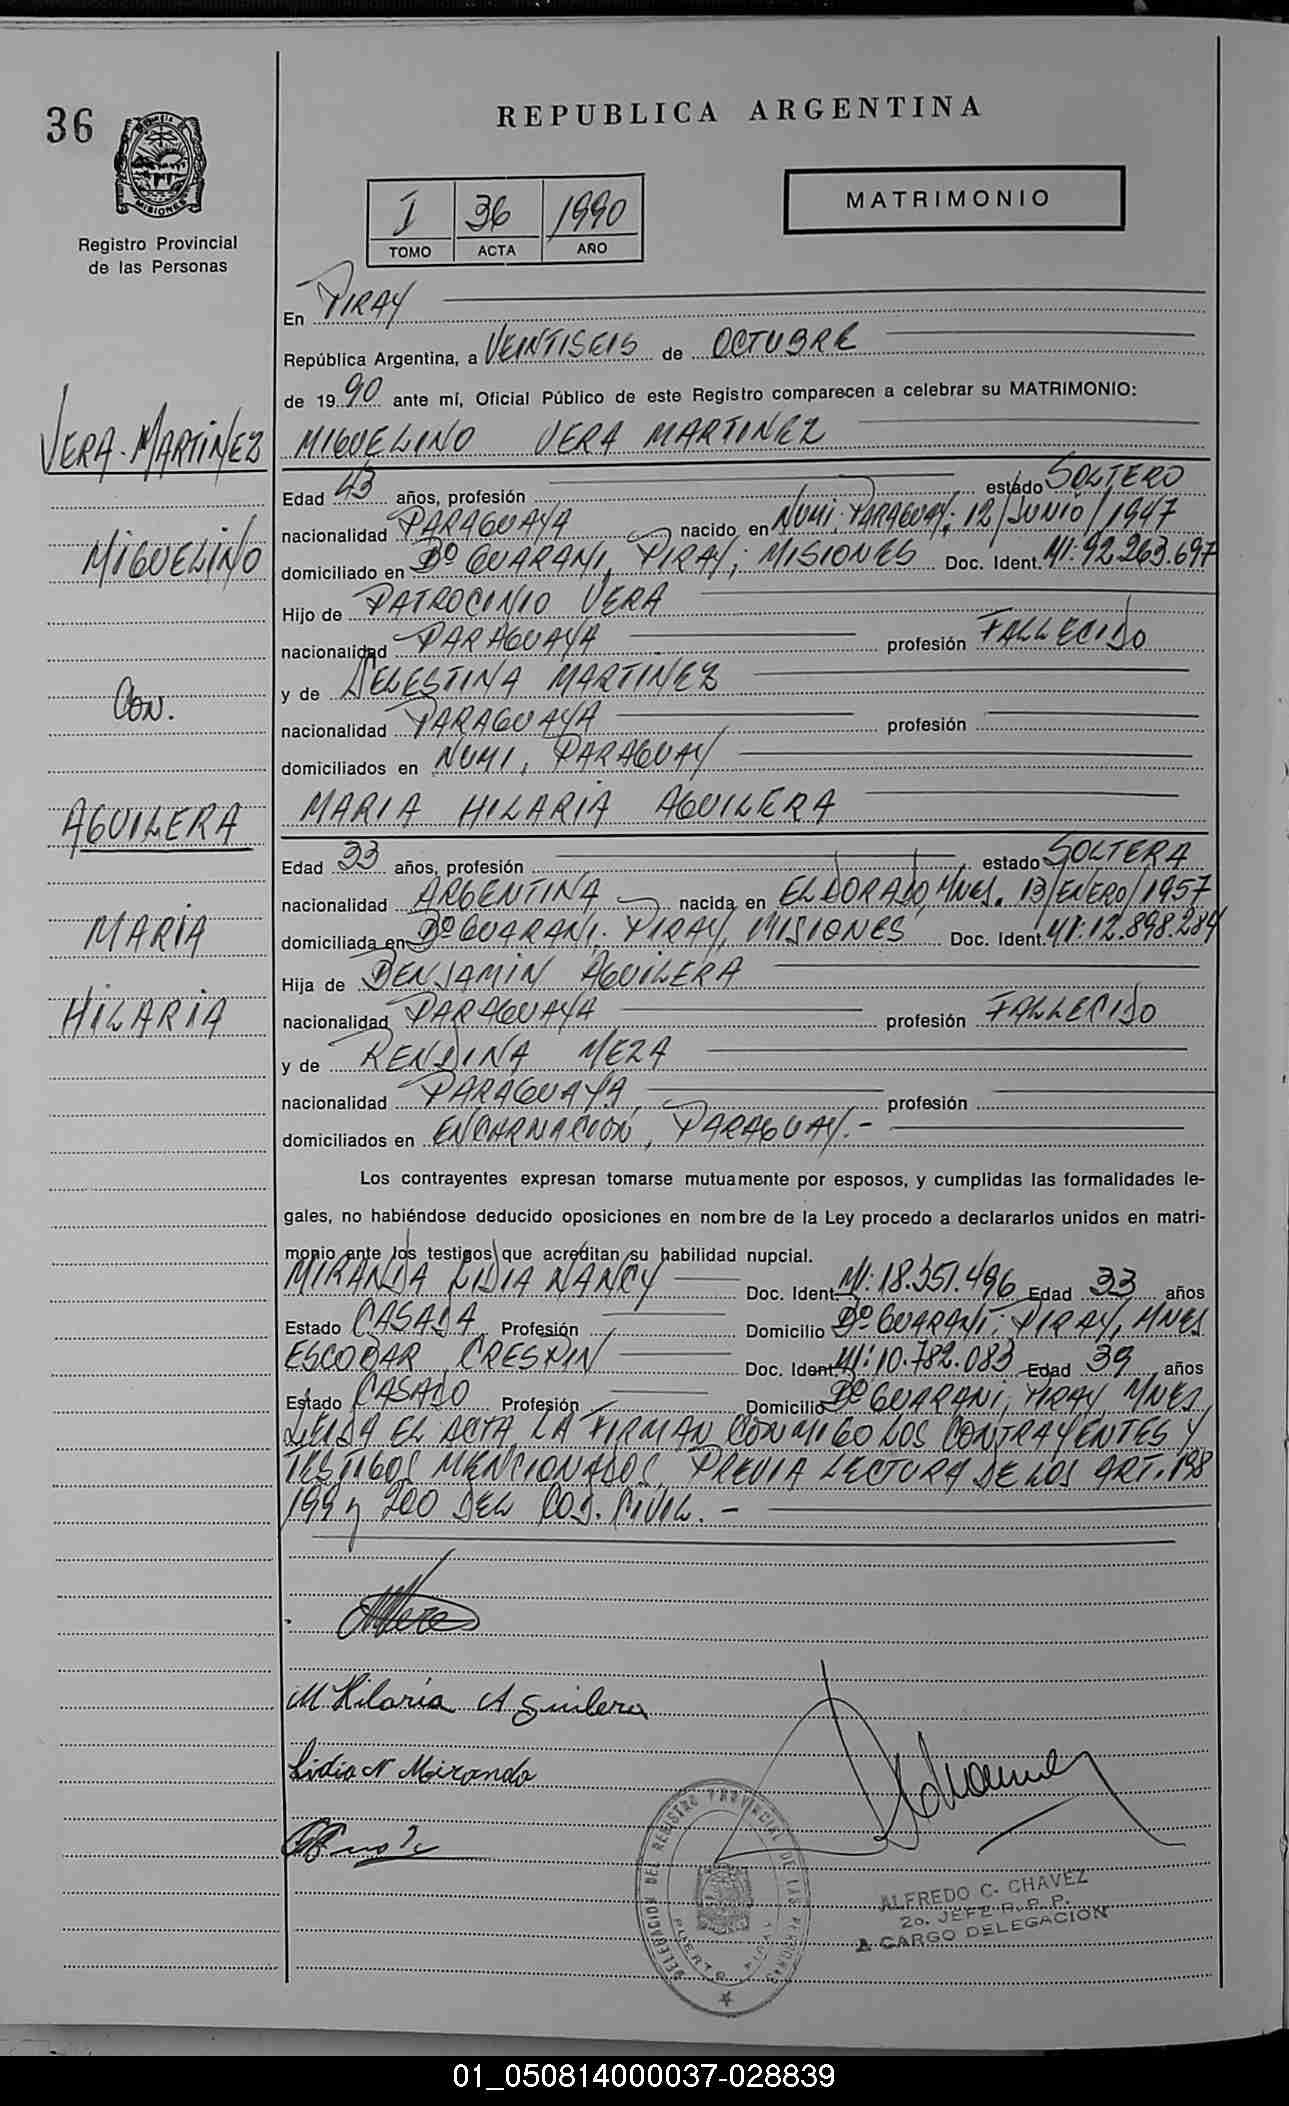 36
REPUBLICA ARGENTINA
MATRIMONIO
I 36 1990
TOMO ACTA AÑO
MISIONES
Registro Provincial
de las Personas
En PIRAY
República Argentina, a VEINTISEIS de OCTUBRE
de 1990 ante mí, Oficial Público de este Registro comparecen a celebrar su MATRIMONIO:
VERA-MARTINEZ
MIGUELINO
CON.
AGUILERA
MARIA
HILARIA
MIGUELINO VERA MARTINEZ
Edad 43 años, profesión estado SOLTERO
nacionalidad PARAGUAYA nacido en NUMI, PARAGUAY; 12/JUNIO/1947
domiciliado en Bº GUARANI, PIRAY; MISIONES Doc. Ident. MI: 92.263.697
Hijo de PATROCINIO VERA
nacionalidad PARAGUAYA profesión FALLECIDO
y de CELESTINA MARTINEZ
nacionalidad PARAGUAYA profesión
domiciliados en NUMI, PARAGUAY
MARIA HILARIA AGUILERA
Edad 33 años, profesión estado SOLTERA
nacionalidad ARGENTINA nacida en ELDORADO, MNES. 13/ENERO/1957
domiciliada en Bº GUARANI. PIRAY, MISIONES Doc. Ident. MI: 12.898.284
Hija de BENJAMIN AGUILERA
nacionalidad PARAGUAYA profesión FALLECIDO
y de MEZA
nacionalidad PARAGUAYA profesión
domiciliados en ENCARNACION, PARAGUAY.-
Los contrayentes expresan tomarse mutuamente por esposos, y cumplidas las formalidades le-
gales, no habiéndose deducido oposiciones en nombre de la Ley procedo a declararlos unidos en matri-
monio ante los testigos que acreditan su habilidad nupcial.
MIRANDA LIDIA NANCY Doc. Ident. MI: 18.351.496 Edad 33 años
Estado CASADA Profesión Domicilio Bº GUARANI; PIRAY, MNES
ESCOBAR CRESPIN Doc. Ident. MI: 10.782.083 Edad 39 años
Estado CASADO Profesión Domicilio Bº GUARANI, PIRAY, MNES
LEIDA EL ACTA LA FIRMAN CONMIGO LOS CONTRAYENTES Y
TESTIGOS MENCIONADOS, PREVIA LECTURA DE LOS ART. 198
199 y 200 DEL COD. CIVIL.-
M Hilaria Aguilera
Lidia N Miranda
DELEGACION DEL REGISTRO PROVINCIAL DE LAS PERSONAS
PUERTO PIRAY
ALFREDO C. CHAVEZ
2o. JEFE R. P. P.
A CARGO DELEGACION
01_050814000037-028839